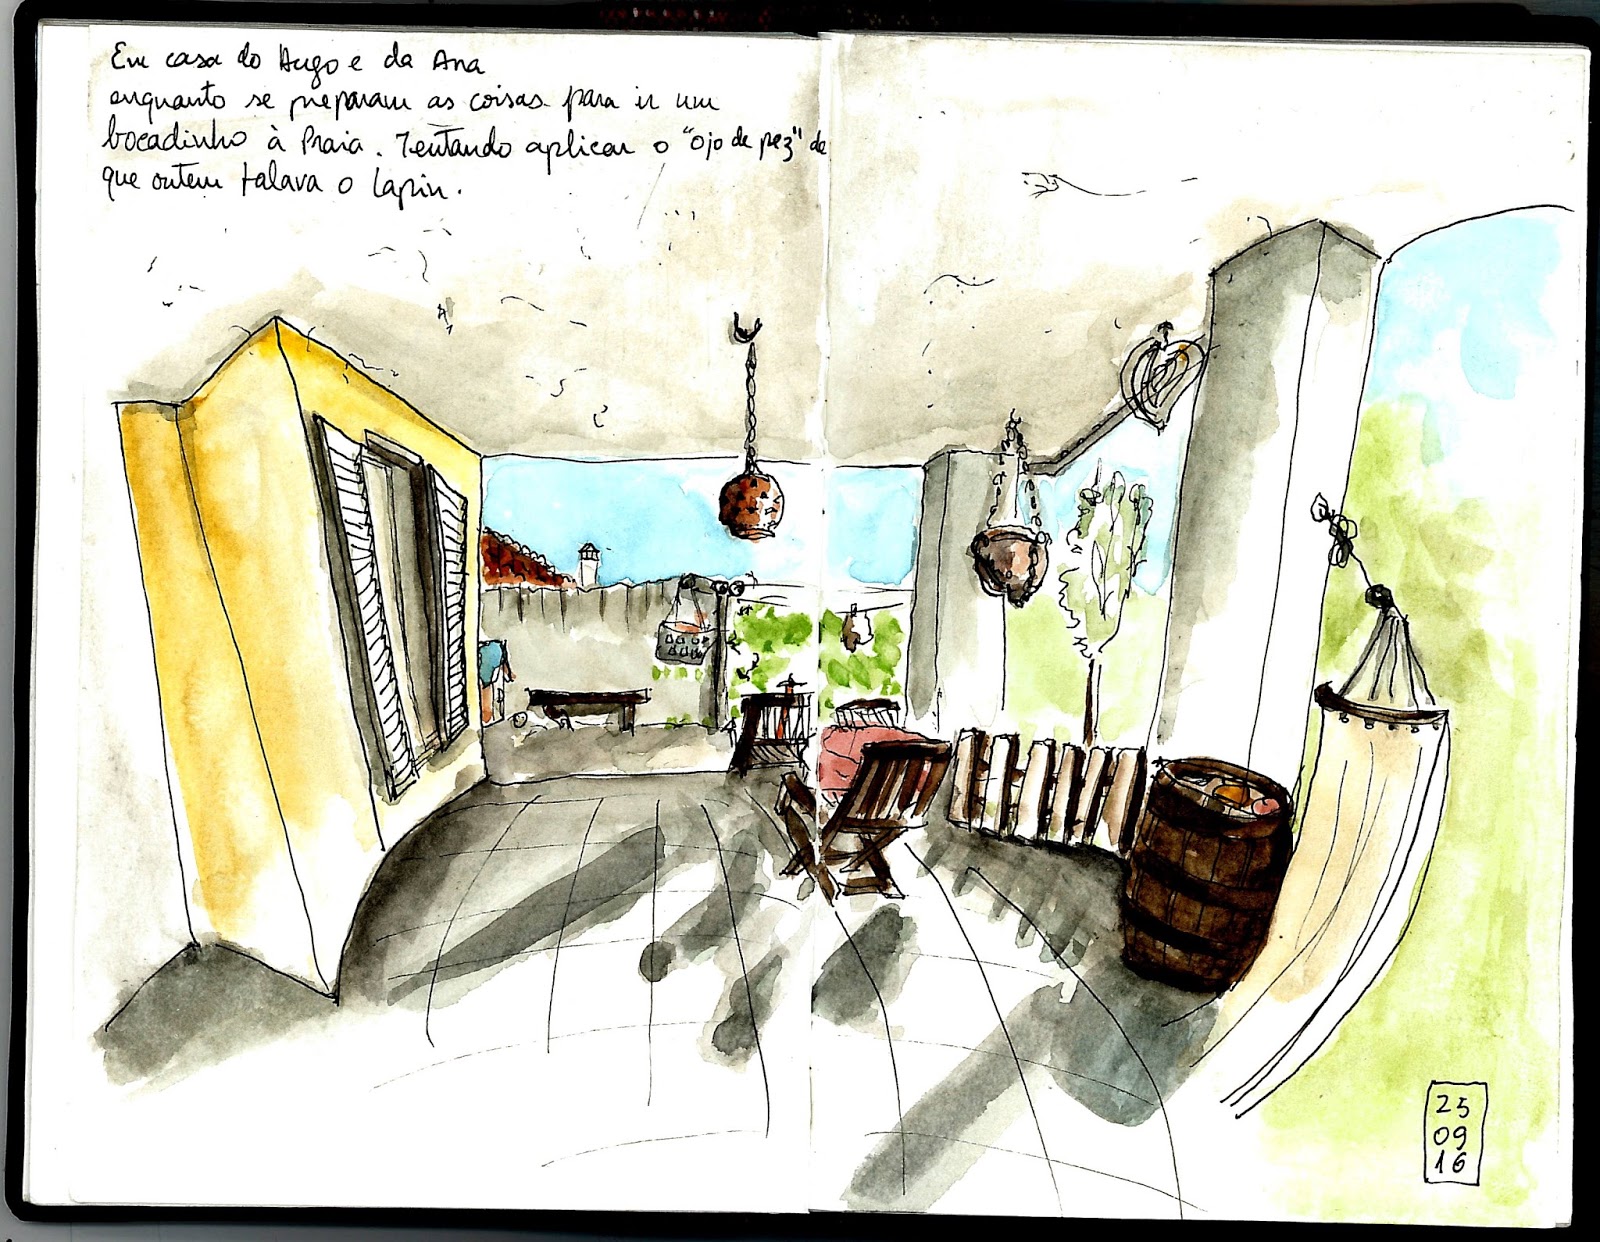 Em casa do Hugo e da Ana
enquanto se preparam as coisas para ir um
bocadinho à Praia. Tentando aplicar o "ojo de pez" de
que ontem falava o Lapin.
25
09
16